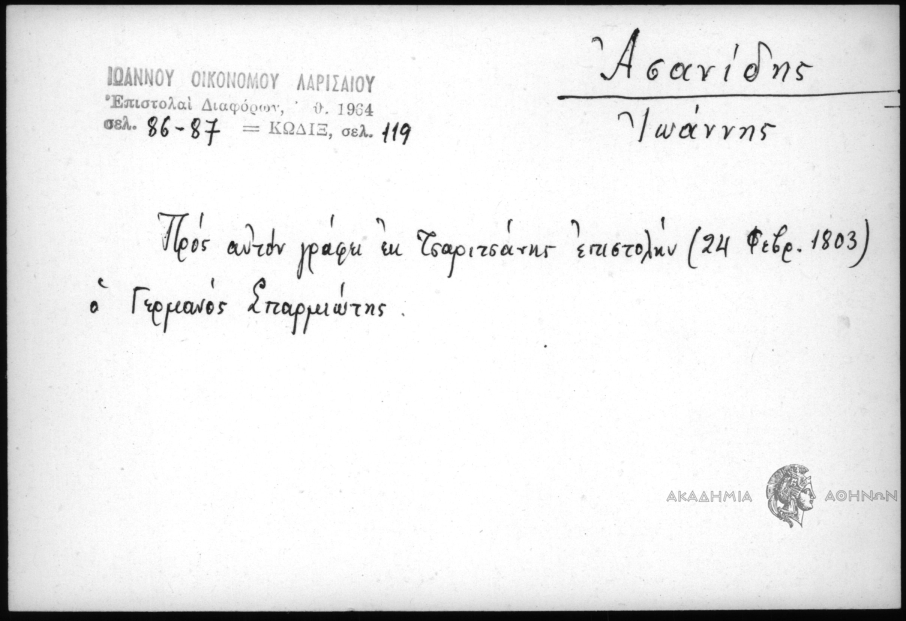 Ἀσανίδης
Ἰωάννης
ΙΩΑΝΝΟΥ ΟΙΚΟΝΟΜΟΥ ΛΑΡΙΣΑΙΟΥ
Ἐπιστολαὶ Διαφόρων, θ. 1964
σελ. 86-87 = ΚΩΔΙΞ, σελ. 119
Πρός αὐτόν γράφει ἐκ Τσαριτσάνης ἐπιστολήν (24 Φεβρ. 1803)
ὁ Γερμανός Σπαρμιώτης.
ΑΚΑΔΗΜΙΑ ΑΘΗΝΩΝ